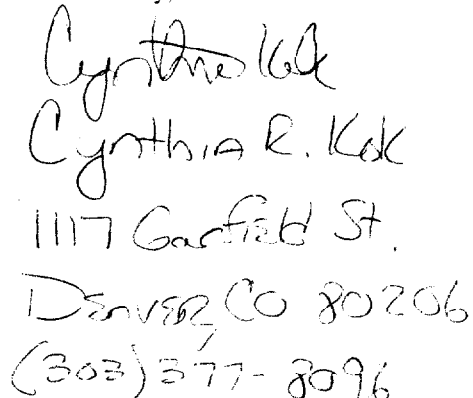 Cynthia Kok
Cynthia R. Kok
1117 Garfield St.
Denver, CO 80206
(303) 377-8096